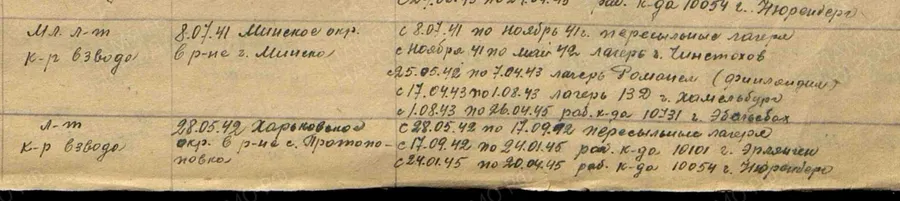 раб. к-да 10054 г. Нюренберг
Мл. л-т
к-р взвода
8.07.41 Минское окр.
в р-не г. Минска
с 8.07.41 по ноябрь 41 г. пересыльные лагеря
с ноября 41 по май 42 лагерь г. Чинстохов
с 25.05.42 по 7.04.43 лагерь (финляндии)
с 17.04.43 по 1.08.43 лагерь 13Д г. Хамельбург
с 1.08.43 по 26.04.45 раб. к-да 10731 г.
л-т
к-р взвода
28.05.42 Харьковское
окр. в р-не с. Протопо-
повка
с 28.05.42 по 17.09.42 пересыльные лагеря
с 17.09.42 по 24.01.45 раб. к-да 10101 г. Эрлянген
с 24.01.45 по 20.04.45 раб. к-да 10054 г. Нюренберг